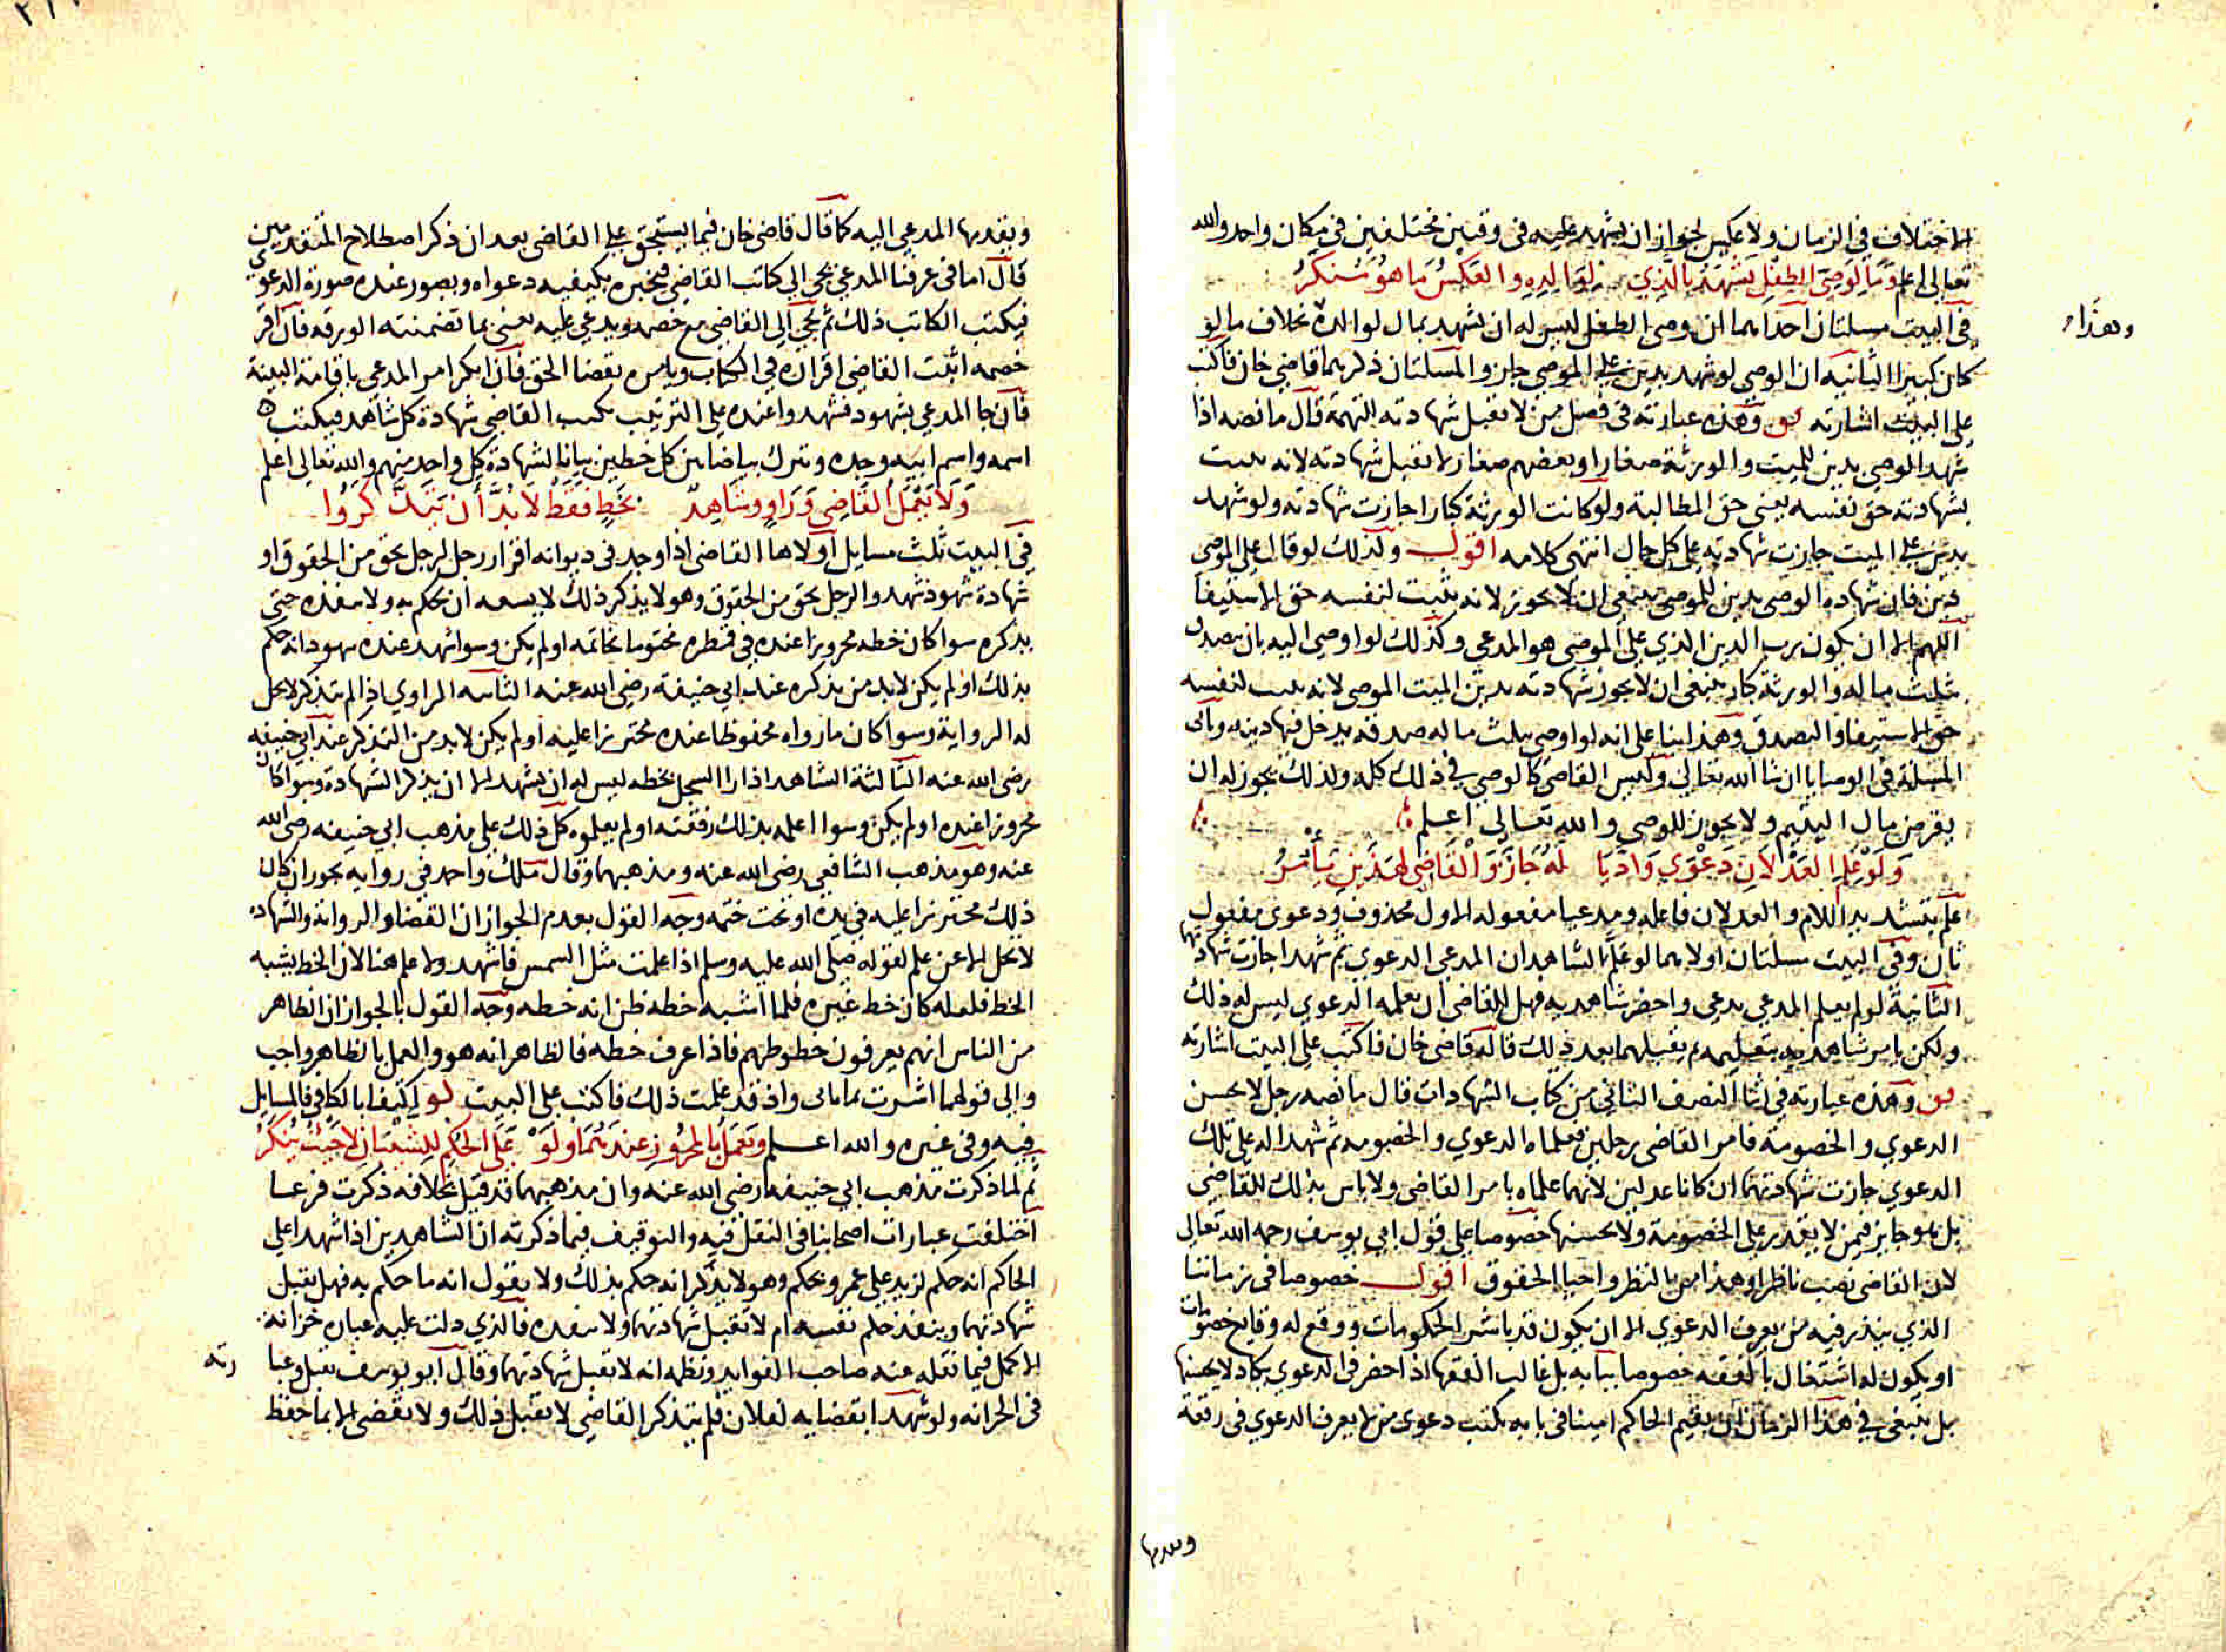 الاختلاف في الزمان ولا عكس لجواز ان يشهد عليه في وقتين مختلفين في مكان واحد والله
تعالى اعلم وما لوصي الطفل يشهد بالذي لوالده والعكس ما هو منكر
في البيت مسلتان احداهما ان وصي الطفل ليس له ان يشهد بمال لوالده بخلاف ما لو
وهذا
كان كبيرا الثانيه ان الوصي لو شهد بدين على الموصي جاز والمسلتان ذكرهما قاضي خان فاكتب
على البيت اشارته وهذه عبارته في فصل من لا تقبل شهادته للتهمة قال ما نصه اذا
شهد الوصي بدين للميت والورثة صغار او بعضهم صغار لا تقبل شهادته لانه يثبت
بشهادته حق نفسه يعني حق المطالبة ولو كانت الورثة كبارا جازت شهادته ولو شهد
بدين على الميت جازت شهادته على كل حال انتهى كلامه اقول وكذلك لو قال على الموصي
دين فان شهادة الوصي بدين للموصي ينبغي ان لا يجوز لانه يثبت لنفسه حق الاستيفا
اللهم الا ان يكون رب الدين الذي على الموصي هو المدعي وكذلك لو اوصي اليه بان يصدق
بثلث ماله والورثة كبار ينبغي ان لا يجوز شهادته بدين الميت الموصي لانه يثبت لنفسه
حق الاستيفا والتصدق وهذا بنا على انه لو اوصى بثلث ماله صدقه يدخل فيها دينه وتاتي
المسلة في الوصايا ان شا الله تعالى وليس القاضي كالوصي في ذلك كله ولذلك يجوز له ان
يقرض مال اليتيم ولا يجوز للوصي والله تعالى اعلم
ولو علم العدلان دعوى واديا له جاز والقاضي لهذين يامر
علم بتشديد اللام والعدلان فاعله ومدعيا مفعوله الاول محذوف ودعوى مفعول
ثان وفي البيت مسلتان اولاهما لو علم الشاهدان المدعي الدعوي ثم شهدا جازت شهادتهما
الثانية لو لم يعلم المدعي يدعي واحضر شاهديه فهل للقاضي ان يعلمه الدعوي ليس له ذلك
ولكن يامر شاهديه بتعليمه ثم يقبلهما بعد ذلك قاله قاضي خان فاكتب على البيت اشارته
وهذه عبارته في اثنا النصف الثاني من كتاب الشهادات قال ما نصه رجل لا يحسن
الدعوي والخصومة فامر القاضي رجلين فعلماه الدعوي والخصومه ثم شهدا له على تلك
الدعوي جازت شهادتهما ان كانا عدلين لانهما علماه بامر القاضي ولا باس بذلك للقاضي
بل هو جايز فيمن لا يقدر على الخصومة ولا يحسنها خصوصا على قول ابي يوسف رحمه الله تعالى
لان القاضي نصب ناظرا وهذا من النظر واحيا الحقوق اقول خصوصا في زماننا
الذي يندر فيه من يعرف الدعوي الا ان يكون قد باشر الحكومات ووقع له وقايع خصومات
او يكون له اشتغال بالفقه خصوصا ببابه بل غالب الفقها اذا حضر في الدعوي يكاد لا يحسنها
بل ينبغي في هذا الزمان ان يقيم الحاكم امينا في بابه يكتب دعوى من لا يعرف الدعوي في رقعة
ويقدمها
ويقدمها المدعي اليه كما قال قاضي خان فيما يستحق على القاضي بعد ان ذكر اصطلاح المتقدمين
قال اما في عرفنا المدعي يجي الى كاتب القاضي فيخبره بكيفيه دعواه ويصور عنده صورة الدعوي
فيكتب الكاتب ذلك ثم يجي الى القاضي مع خصمه ويدعي عليه يعني بما تضمنته الورقه فان اقر
خصمه اثبت القاضي اقراره في الكتاب ويامره بقضا الحق فان انكر امر المدعي باقامة البينة
فان جا المدعي بشهود فشهدوا عنده على الترتيب يكتب القاضي شهادة كل شاهد فيكتب
اسمه واسم ابيه وجده ويترك بياضا بين كل خطين بيانا لشهادة كل واحد منهم والله تعالى اعلم
ولا يعمل القاضي وراو وشاهد بخط فقط لا بد ان يتذكروا
في البيت ثلث مسايل اولاها القاضي اذا وجد في ديوانه اقرار رجل لرجل بحق من الحقوق او
شهادة شهود شهدوا لرجل بحق من الحقوق وهو لا يذكر ذلك لا يسعه ان يحكم به ولا ينفذه حتى
يذكره سوا كان خطه محرورا عنده في قمطره مختوما بخاتمه او لم يكن وسوا شهد عنده شهود انه حكم
بذلك او لم يكن لا بد من يذكره عند ابي حنيفة رضي الله عنه الثانيه الراوي اذا لم يتذكر لا يحل
له الرواية وسوا كان ما رواه محفوظا عنده محترزا عليه او لم يكن لا بد من التذكر عند ابي حنيفه
رضي الله عنه الثالثة الشاهد اذا راا السجل بخطه ليس له ان يشهد الا ان يذكر الشهادة وسوا كان
محروزا عنده او لم يكن وسوا اعلمه بذلك رفقته او لم يعلموه كل ذلك على مذهب ابي حنيفه رضي الله
عنه وهو مذهب الشافعي رضي الله عنه ومذهبهما وقال مالك واحمد في روايه يجوز ان كان
ذلك محترزا عليه في يده او تحت ختمه وجه القول بعدم الجواز ان القضا والروايه والشهاده
لا يحل الا عن علم لقوله صلى الله عليه وسلم اذا علمت مثل الشمس فاشهد ولا علم هنا لان الخط يشبه
الخط فلعله كان خط غيره فلما اشبه خطه ظن انه خطه وجه القول بالجواز ان الظاهر
من الناس انهم يعرفون خطوطهم فاذا عرف خطه فالظاهر انه هو والعمل بالظاهر واجب
والى قولهما اشرت بما ياتي واذ قد علمت ذلك فاكتب على البيت اكتفا بالكافي فالمسايل
فيه وفي غيره والله اعلم ويعمل بالمحروز عندهما ولو على الحكم للشيئان لا حيث ينكر
ثم لما ذكرت مذهب ابي حنيفه رضي الله عنه وان مذهبهما قد قيل بخلافه ذكرت فرعا
اختلفت عبارات اصحابنا في النقل فيه والتوقيف فيما ذكرته ان الشاهدين اذا شهدا على
الحاكم انه حكم لزيد على عمرو بحكم وهو لا يذكر انه حكم بذلك ولا يقول انه ما حكم به فهل يقبل
شهادتهما وينفذ حكم نفسه ام لا تقبل شهادتهما ولا ينفذه فالذي دلت عليه عباره خزانة
الاكمل فيما نقله عنه صاحب الفوايد ونظمه انه لا تقبل شهادتهما وقال ابو يوسف تقبل وعبا
رته
في الخزانه ولو شهدا بقضايه لفلان فلم يتذكر القاضي لا تقبل ذلك ولا يقضي الا بما حفظ